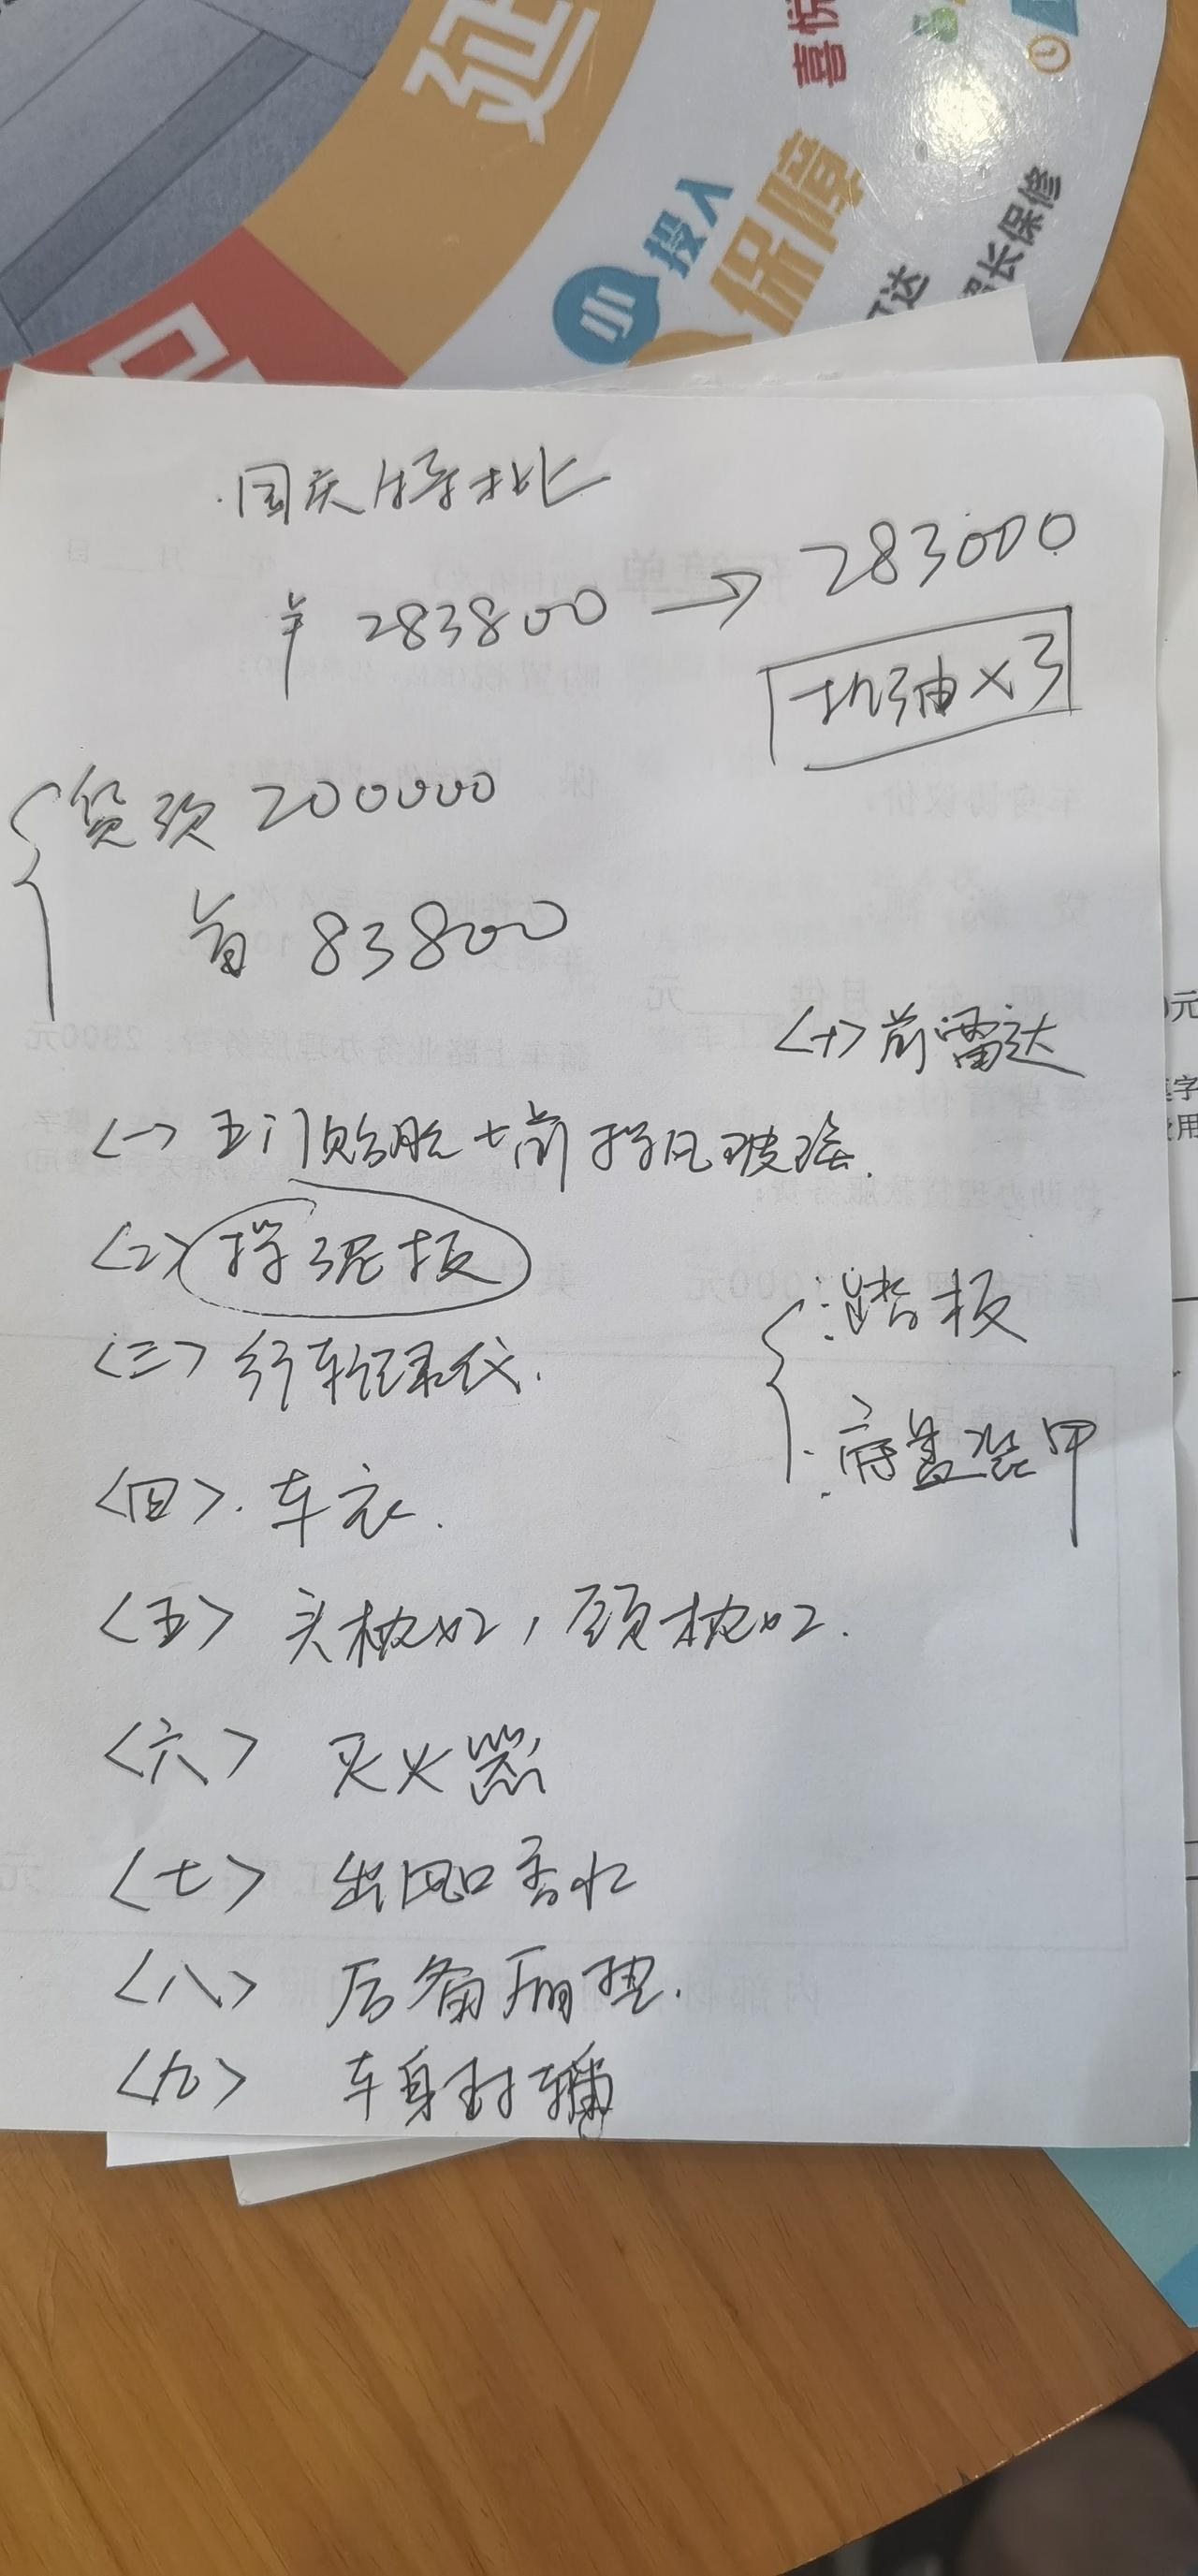 延
喜悦
小
投入
保障
可达
超长保修
国庆特批
¥ 283800 → 283000
机油×3
贷款 200000
首 83800
<十> 前雷达
<一> 五门贴膜+前挡风玻璃.
<二> 挡泥板
踏板
<三> 行车记录仪.
底盘装甲
<四>. 车衣.
<五> 头枕×2, 颈枕×2.
<六> 灭火器
<七> 出风口香水
<八> 后备厢垫.
<九> 车身封
2800元
元
字
用